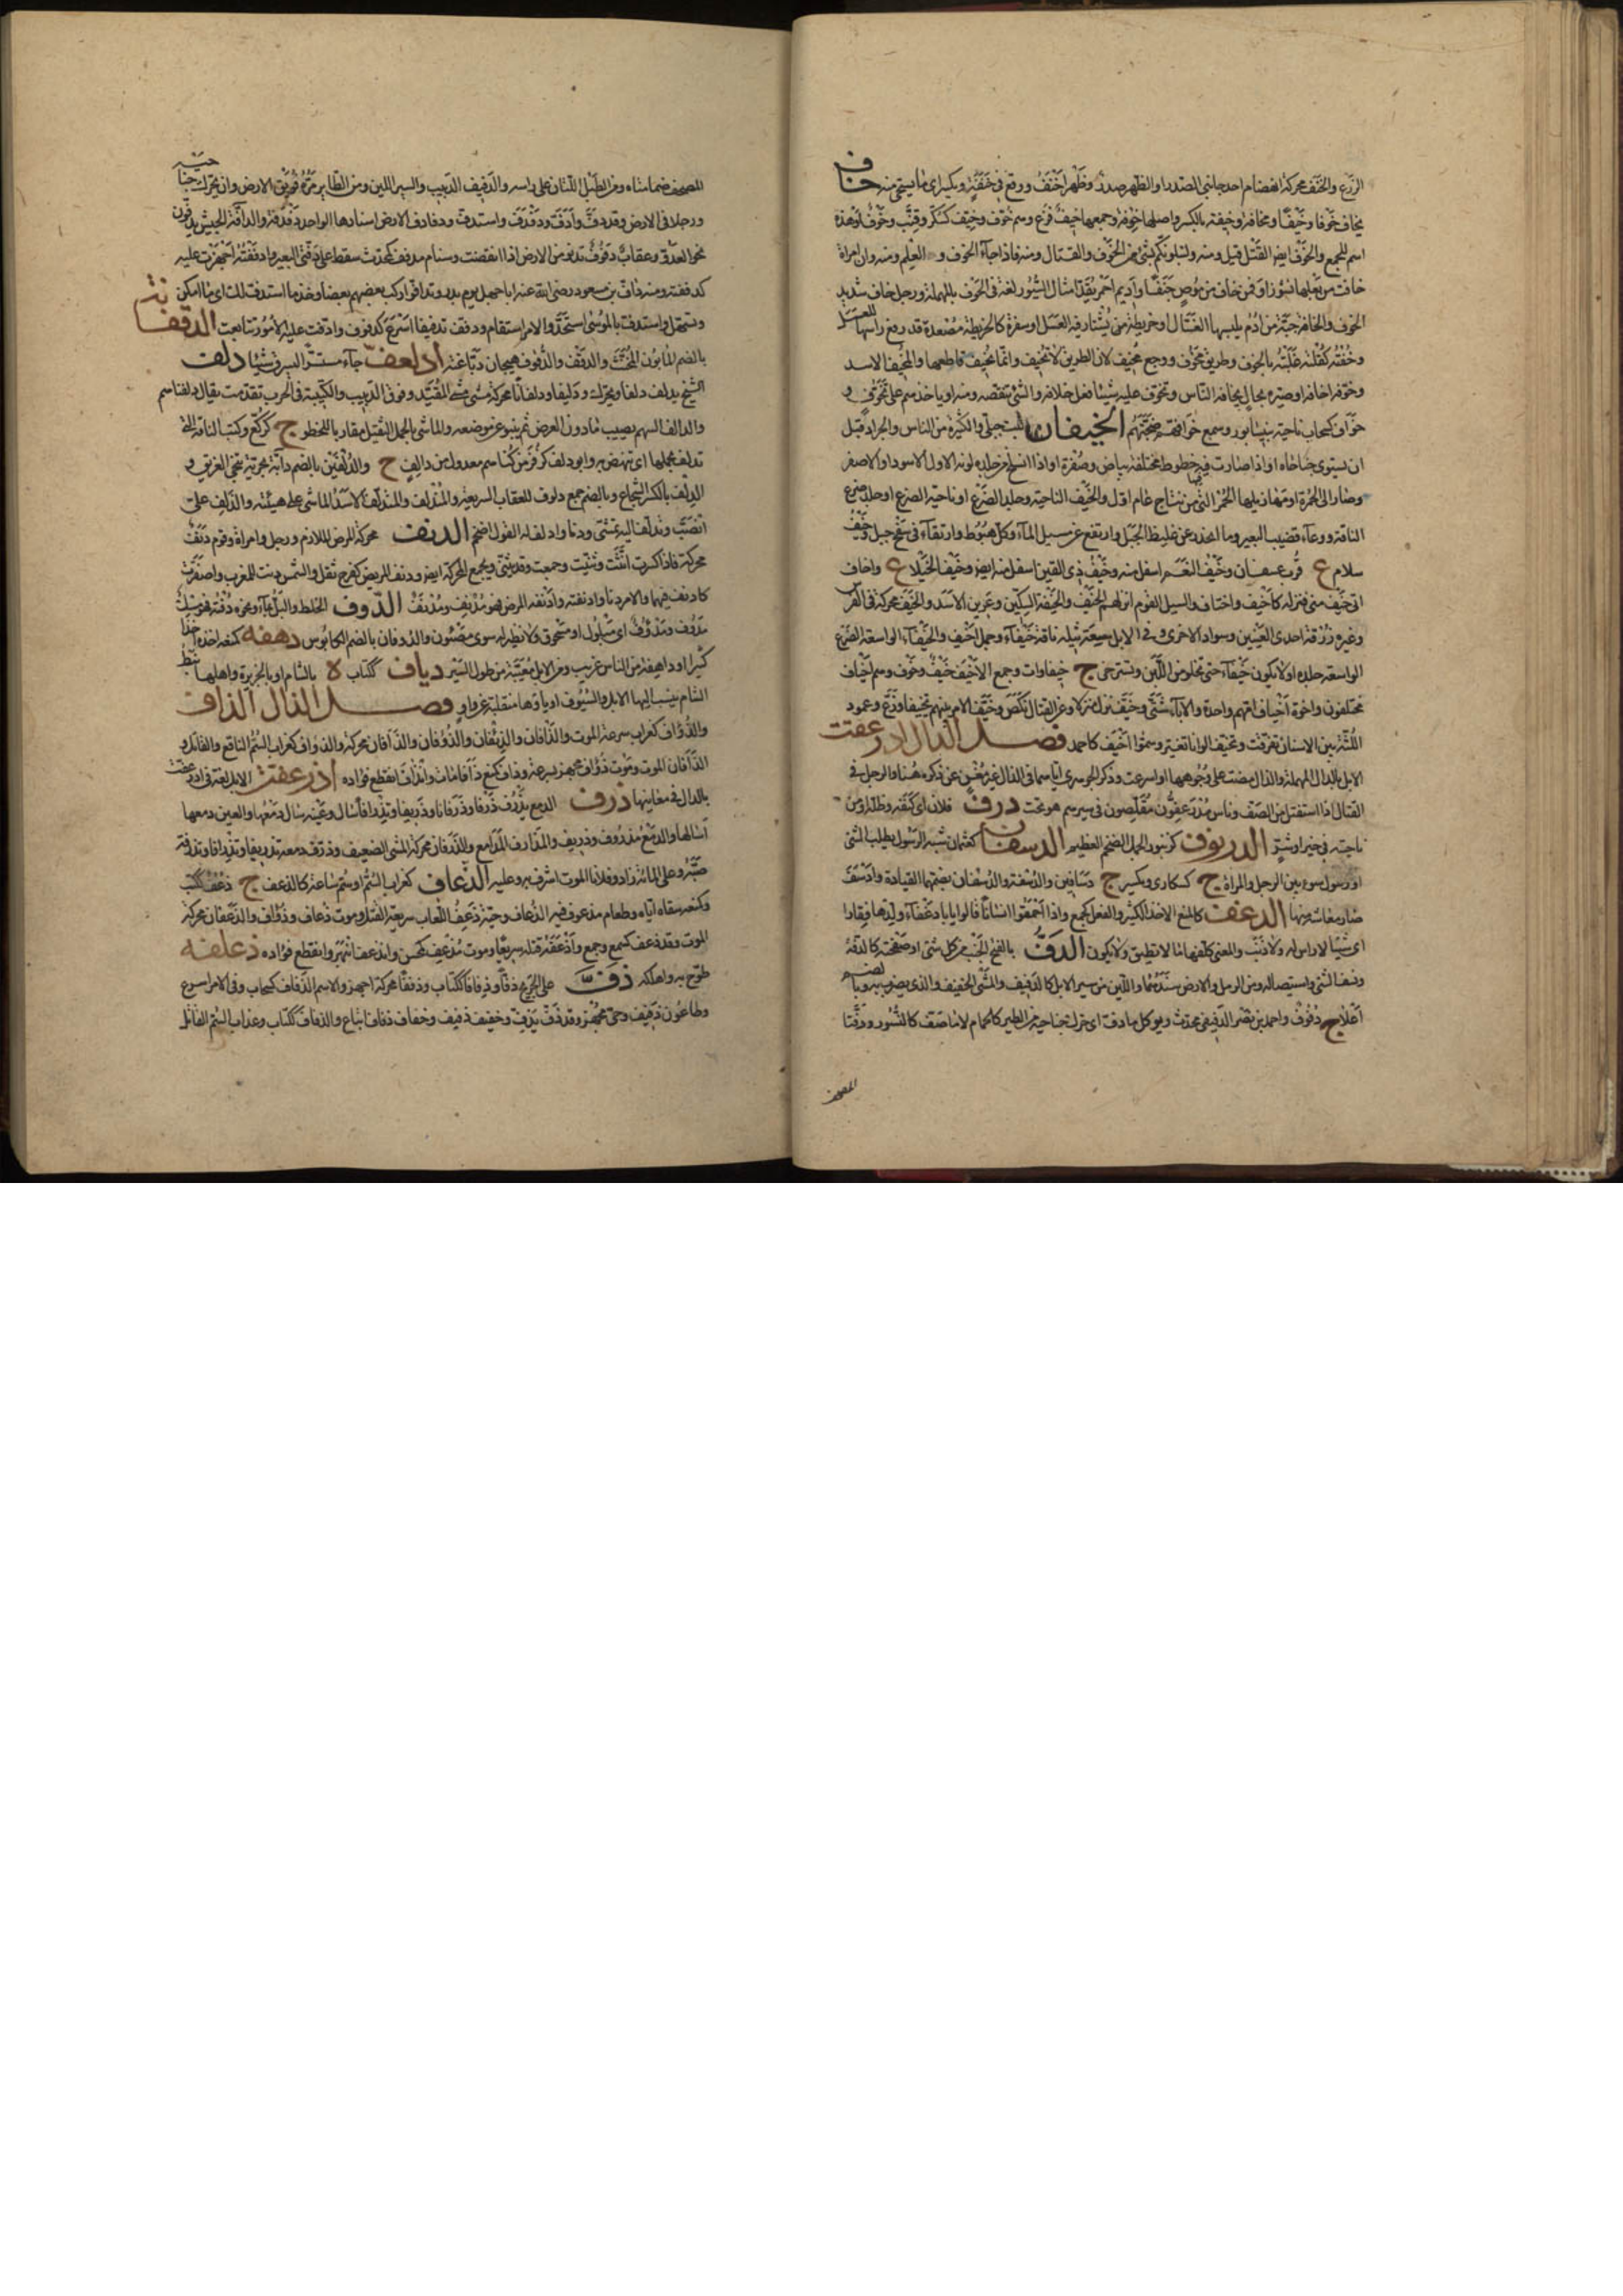 الزرع والخنف محركة انهضام احد جانبي الصدر او الظهر صدر وظهر اخنف ووقع في خنفة ويكسر اي ما يستحي منه خاف
يخاف خوفا وخيفا ومخافة وخيفة بالكسر واصلها خوفة وجمعها خيف فزع وهم خوف وخيف كسكر وقنب وخوف او هذه
اسم للجمع والخوف ايضا القتل قيل ومنه ولنبلونكم بشيء من الخوف والقتال ومنه فاذا جاء الخوف و العلم ومنه وان امراة
خافت من بعلها نشوزا او فمن خاف من موص جنفا واديم احمر يقد امثال السيور لغة في الحوف بالمهملة ورجل خاف شديد
الخوف والخافة جبة من ادم يلبسها العسال او خريطة من يشتار فيه العسل او سفرة كالخريطة مصعدة قد رفع راسها للعسل
وخفته كقلته غلبته بالخوف وطريق مخوف ووجع مخيف لان الطريق لا تخيف وانما يخيف قاطعها والمخيف الاسد
وخوفه اخافه او صيره بحال يخافه الناس وتخوف عليه شيئا فعل خلافه والشيء تنقصه ومنه او ياخذهم على تخوف و
خواف كسحاب ناحية بنيسابور وسمع خوافهم ضجتهم الخيفان نبت جبلي والكثرة من الناس والجراد قبل
ان يستوي جناحاه او اذا صارت فيه خطوط مختلفة بياض وصفرة او اذا انسلخ من جلده لونه الاول الاسود او الاصفر
وصار الى الحمرة او مهازيلها الحمر التي من نتاج عام اول والخيف الناحية وجلد الضرع او ناحية الضرع او جلد ضرع
الناقة ووعاء قضيب البعير وما انحدر عن غليظ الجبل وارتفع عن مسيل الماء وكل هبوط وارتقاء في سفح جبل وخيف
سلام ع قرب عسفان وخيف النعم اسفل منه وخيف ذي القبر اسفل منه ايضا وخيف الخيل ع واخاف
اتى خيف منى فنزله كاخيف واختاف والسيل القوم انزلهم الخيف والخيفة السكين وعرين الاسد والخيف محركة في الفرس
وغيره زرقة احدى العينين وسواد الاخرى و في الابل سعة ثيله ناقة خيفاء وجمل اخيف والخيفاء الواسعة الضرع
الواسعة جلده او لا تكون خيفاء حتى تخلو من اللبن وتسترخي ج خيفاوات وجمع الاخيف خيف وخوف وهم اخياف
مختلفون واخوة اخياف امهم واحدة والاباء شتى وخيف نزل منزلا وعن القتال نكص وخيف الامر بينهم تخييفا وزع وعمود
اللثة بين الاسنان تفرقت وتخيف الوانا تغير وسموا اخيف كاحمد فصل الدال ادرعفت
الابل بالدال المهملة والذال مضت على وجوهها او اسرعت وذكر الجوهري اياها في الذال غير مغن عن ذكره هنا والرجل في
القتال اذا استقتل من الصف وناس مدرعفون مقلصون في سيرهم هو تحت درف فلان اي كنفه وظله او من
ناحيته في خير او شر الدرنوف كزنبور الجمل الضخم العظيم الدسفان كعثمان شبه الرسول يطلب الشيء
او رسول سوء بين الرجل والمراة ج كسكارى ويكسر ج دسافين والدسفة والدسفان بضمهما القيادة وادسف
صار معاشه منها الدعف كالمنع الاخذ الكثير والفعل كجمع واذا احمقوا انسانا قالوا يا با دغفاء ولدها فقارا
اي شيئا لا راس له ولا ذنب والمعنى كلفها ما لا تطيق ولا يكون الدف بالفتح الجنب من كل شيء او صفحته كالدفة
ونسف الشيء واستيصاله ومن الرمل والارض سندهما واللين من سير الابل كالدفيف والمشي الخفيف والذي يضرب به وبالضم
اعلاج دفوف واحمد بن نصر الدفيفي محدث ويوكل ما دف اي حرك جناحيه من الطير كالحمام لا ما صف كالنسور ودفتا
المصحف
المصحف ضمامتاه ومن الطبل اللتان على راسه والدفيف الدبيب والسير اللين ومن الطاير مره فويق الارض وان يحرك جناحيه
ورجلاه في الارض وقد دف وادف ودفدف واستدف ودفادف الارض اسنادها الواحد دفدفة والدافة الجيش يدفون
نحو العدو وعقاب دفوف تدنو من الارض اذا انقضت وسنام مدفف كمحدث سقط على دفتي البعير وادففته اجهزت عليه
كدففته ومنه داف بن مسعود رضي الله عنه ابا جهل يوم بدر وتدافوا ركب بعضهم بعضا وخذ ما استدف لك اي ما امكن
وتسهل واستدف بالموسى استحد والامر استقام ودفف تدفيفا اسرع كدفدف وادفت عليه الامور تتابعت الدقفانة
بالضم المابون المخنث والدقف والدقوف هيجان دبا غته ادلعف جاء مستترا ليسرق شيئا دلف
الشيخ يدلف دلفا ويحرك ودليفا ودلفانا محركة مشى مشي المقيد وفوق الدبيب والكتيبة في الحرب تقدمت يقال دلفناهم
والدالف السهم يصيب ما دون الغرض ثم ينبو عن موضعه والماشي بالحمل الثقيل مقارب الخطو ج كركع وكتب الناقة التي
تدلف بحملها اي تنهض به وابو دلف كزفر من كناهم معدول من دالف ج والدلفين بالضم دابة بحرية تنجي الغريق و
الدلف بالكسر الشجاع وبالضم جمع دلوف للعقاب السريعة والمندلف والمتدلف الاسد الماشي على هينته واندلف علي
انصب وتدلف اليه تمشى ودنا وادلف له القول اضخم الدنف محركة المرض الملازم ورجل وامراة وقوم دنف
محركة فاذا كسرت انثت وثنيت وجمعت وقد يثنى ويجمع المحركة ايضا ودنف المريض كفرح ثقل والشمس دنت للغروب واصفرت
كادنف فيهما والامر دنا وادنفته وادنفه المرض فهو مدنف ومدنف الدوف الخلط والبل بماء ونحوه دفته فهو مسك
مدوف ومدووف اي مبلول او مسحوق ولا نظير له سوى مصوون والدوفان بالضم الكابوس دهفه كمنعه اخذه اخذا
كثيرا او داهفة من الناس غريب ومن الابل معيية من طول السير دياف ككتاب ة بالشام او بالجزيرة واهلها نبط
الشام ينسب اليها الابل والسيوف او ياوها منقلبة عن واو فصل الذال الذاف
والذؤاف كغراب سرعة الموت والذافان والذيفان والذوفان والذافان محركة والذؤاف كغراب السم الناقع والقاتل و
الذافان الموت وموت ذؤاف مجهز بسرعة وذاف كمنع ذافا مات وانذاف انقطع فواده اذرعفت الابل لغة في ادرعفت
بالدال في معانيها ذرف الدمع يذرف ذرفا وذرفانا وذريفا وتذرافا سال وعينه سال دمعها والعين دمعها
اسالها والدمع مذروف وذريف والمذارف المدامع والذرفان محركة المشي الضعيف وذرف دمعه تذريفا وتذرافا وتذرفة
صبه وعلى المائة زاد وفلانا الموت اشرف به وعليه الذعاف كغراب السم او سم ساعة كالذعف ج ذعف ككتب
وكمنعه سقاه اياه وطعام مذعوف فيه الذعاف وحية ذعف اللعاب سريعة القتل وموت ذعاف وذؤاف والذعفان محركة
الموت وقد ذعف كسمع وجمع واذعفه قتله سريعا وموت مذعف كمحسن وانذعف انبهر وانقطع فواده ذعلفه
طوح به واهلكه ذف على الجريح ذفا وذفافا ككتاب وذففا محركة اجهز والاسم الذفاف كسحاب وفي الامر اسرع
وطاعون ذفيف وحي مجهز وقد ذف يذف وخفيف ذفيف وخفاف ذفاف اتباع والذفاف ككتاب وغراب السم القاتل